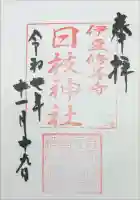 奉拝
伊豆修善寺
日枝神社
令和七年
十一月十六日